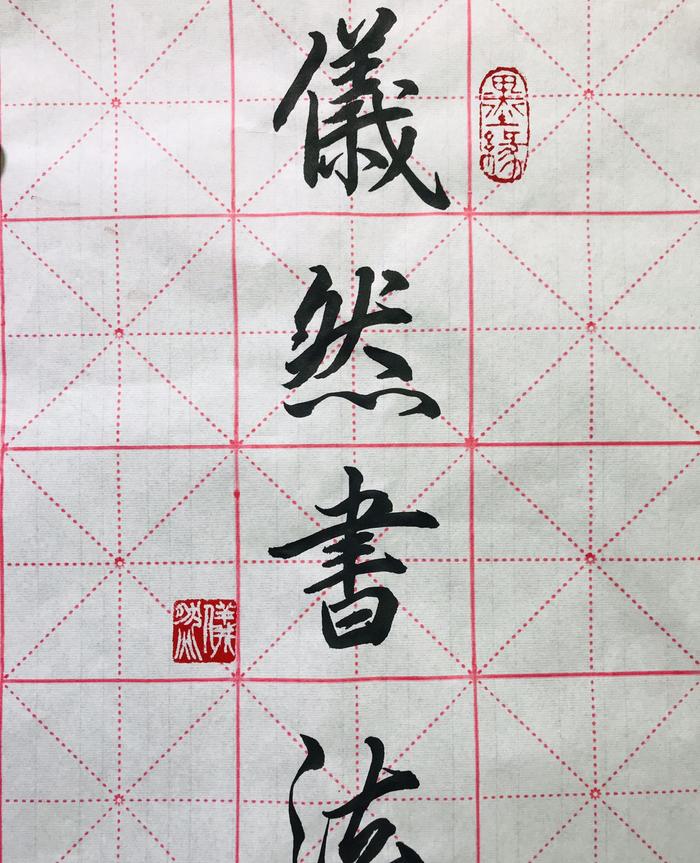 儀然書法
墨緣
儀然